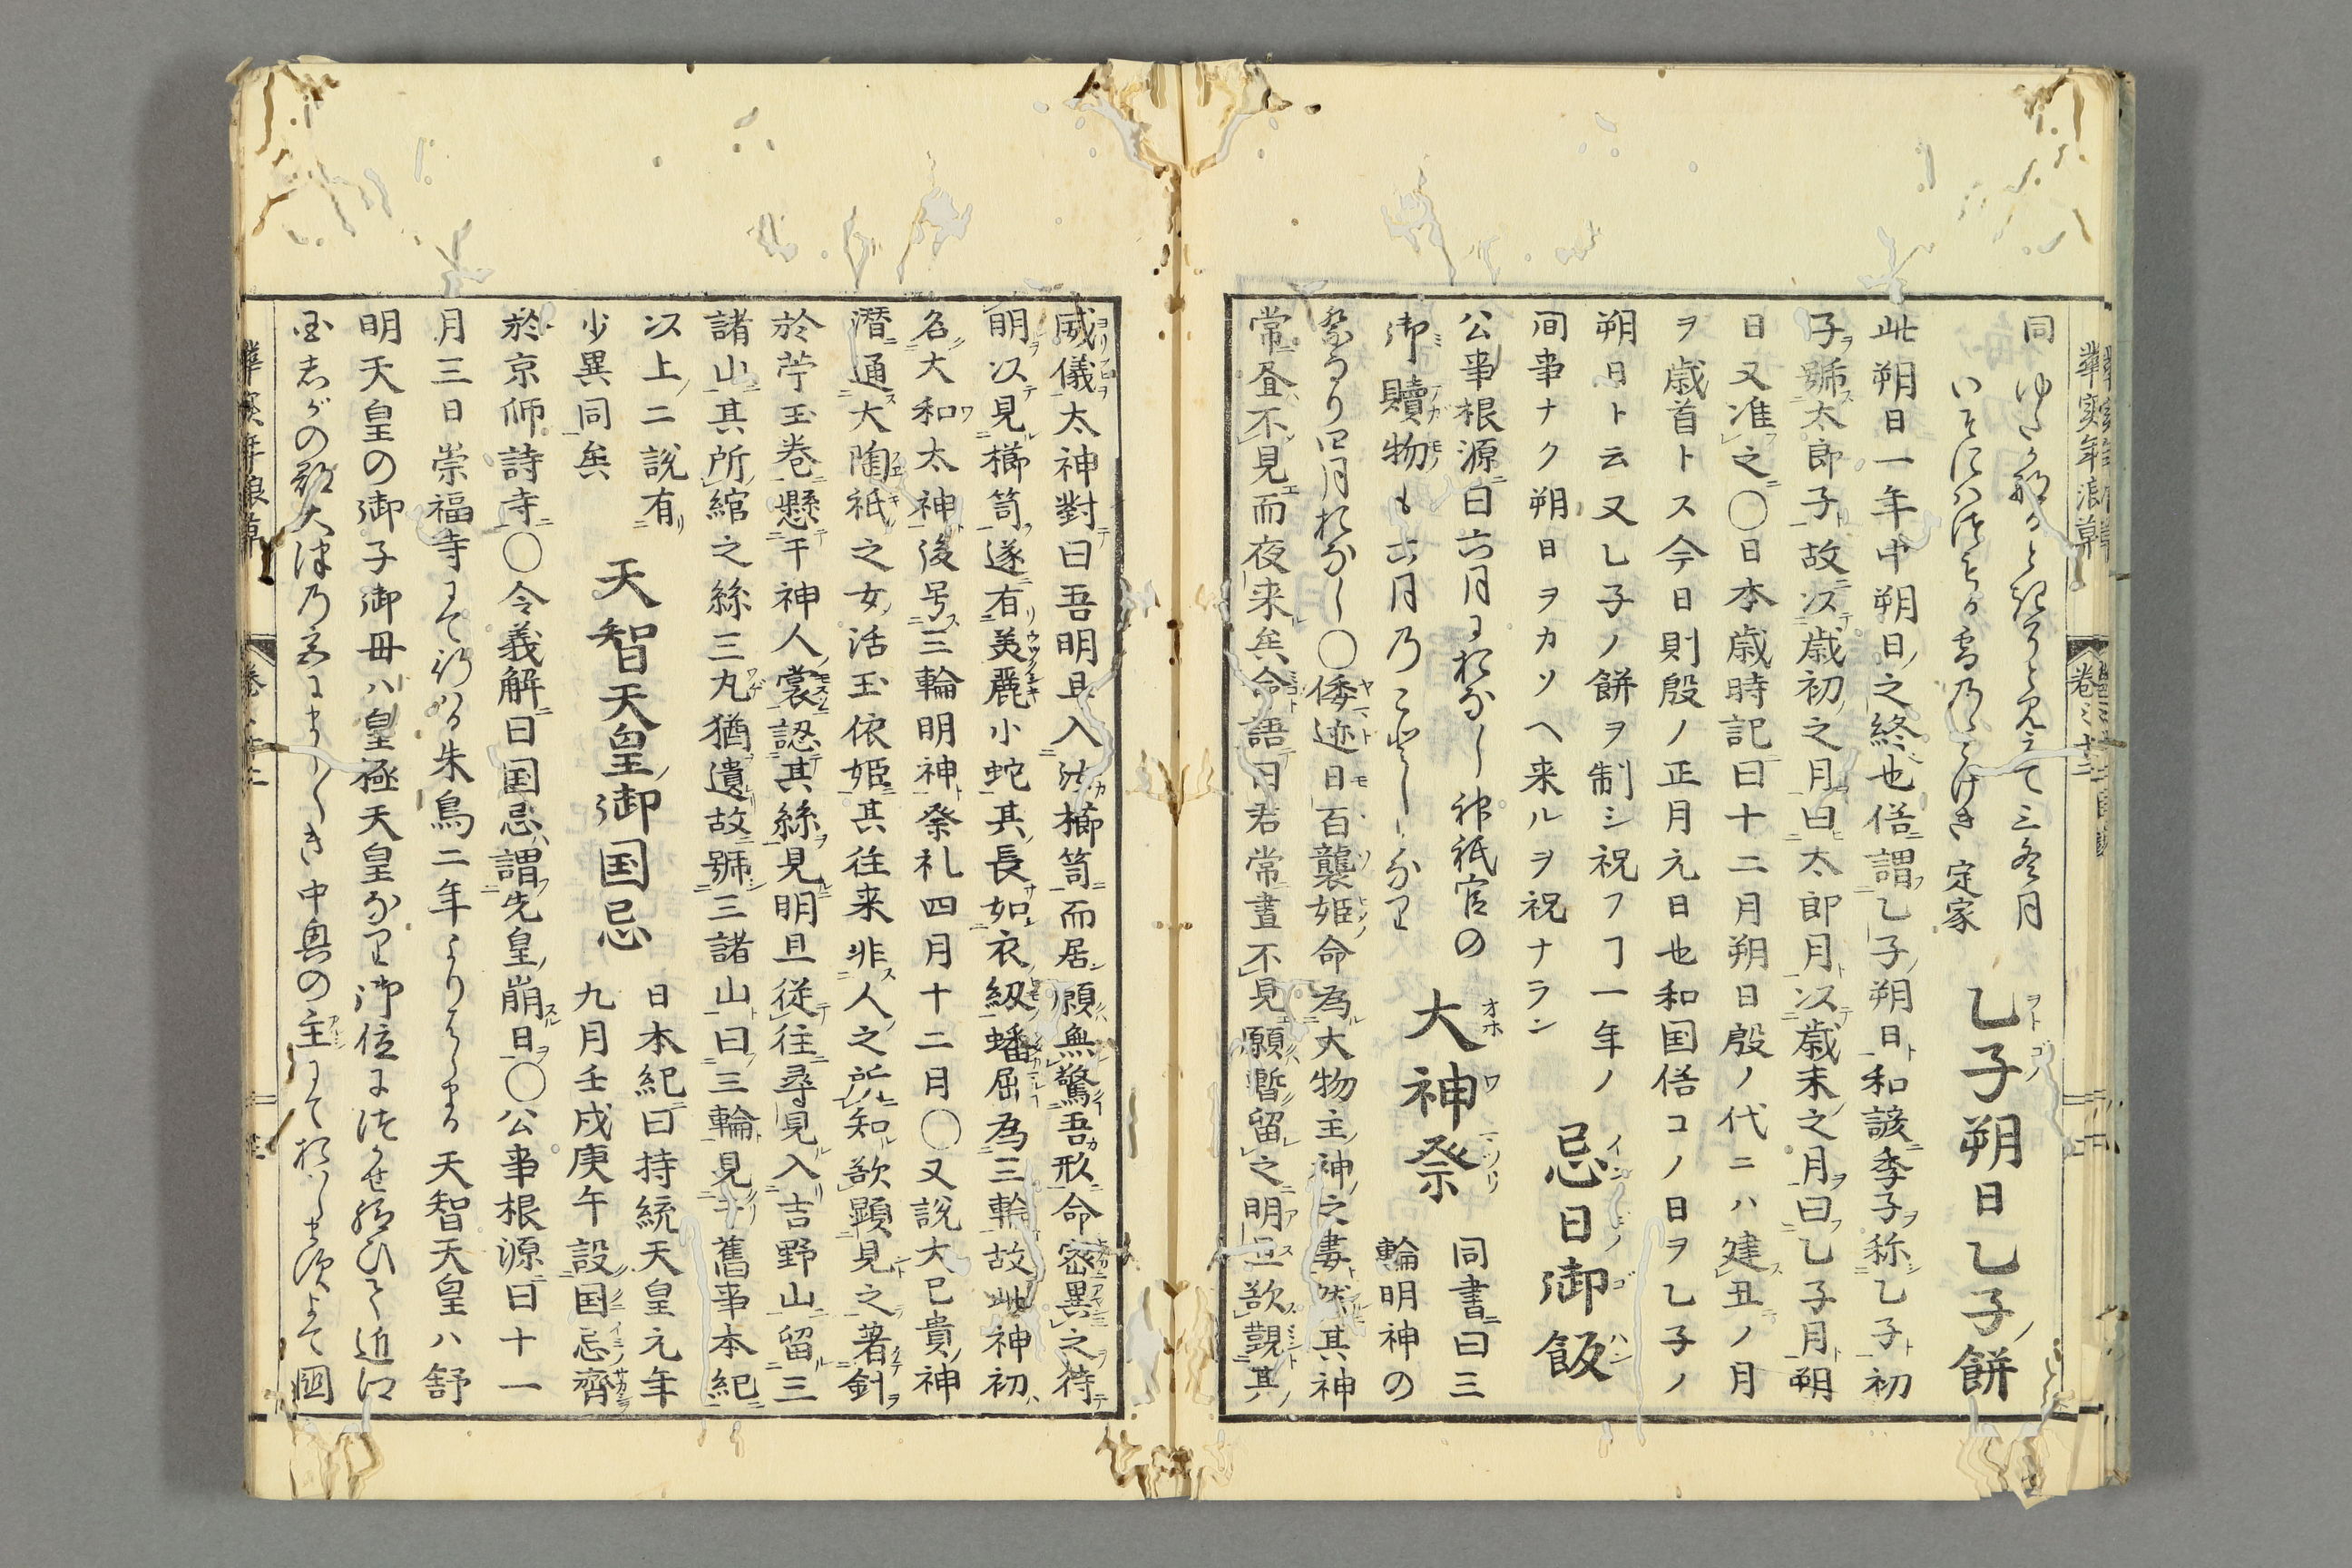 同
三冬月
定家
乙子朔日乙子ノ餅
此朔日一年中朔日之終也俗謂乙子朔日和諺季子称乙子初
子號太郎子故以歳初之月曰太郎月以歳末之月曰乙子月朔
日又准之〇日本歳時記曰十二月朔日殷ノ代ニハ建丑ノ月
ヲ歳首トス今日則殷ノ正月元日也和国俗コノ日ヲ乙子ノ
朔日ト云又乙子ノ餅ヲ制シ祝フヿ一年ノ
間事ナク朔日ヲカソヘ来ルヲ祝ナラン
忌日御飯
公事根源曰六月におなし神祇官の
御贖物も六月乃ことし
大神祭
同書曰三
輪明神の
祭なり四月おなし〇倭迹日百襲姫命為大物主神之妻然其神
常昼不見而夜来矣命語曰君常晝不見願暫留之明旦欲覲其
威儀太神對曰吾明旦入汝櫛笥而居願無驚吾形命密異之待
明以見櫛笥遂有美麗小蛇其長如衣級蟠屈為三輪故此神初
名大和太神後号三輪明神祭礼四月十二月〇又説大己貴神
潜通大陶祇之女活玉依姫其往来非人之所知欲顕見之著針
於苧玉巻懸于神人裳認其絲見明旦従往尋見入吉野山留三
諸山其所綰之絲三丸猶遺故號三諸山曰三輪見于舊事本紀
以上二説有
少異同矣
天智天皇ノ御国忌
日本紀曰持統天皇元年
九月壬戌庚午設国忌齊
於京師諸寺〇令義解曰国忌謂先皇崩日〇公事根源曰十一
月三日崇福寺にて行はる朱鳥二年よりはしまる天智天皇ハ舒
明天皇の御子御母ハ皇極天皇なり御位につかせ給ひて近江
国志がの郡大津乃宮にましましき中興の主にておはします依よて國
華実年浪草